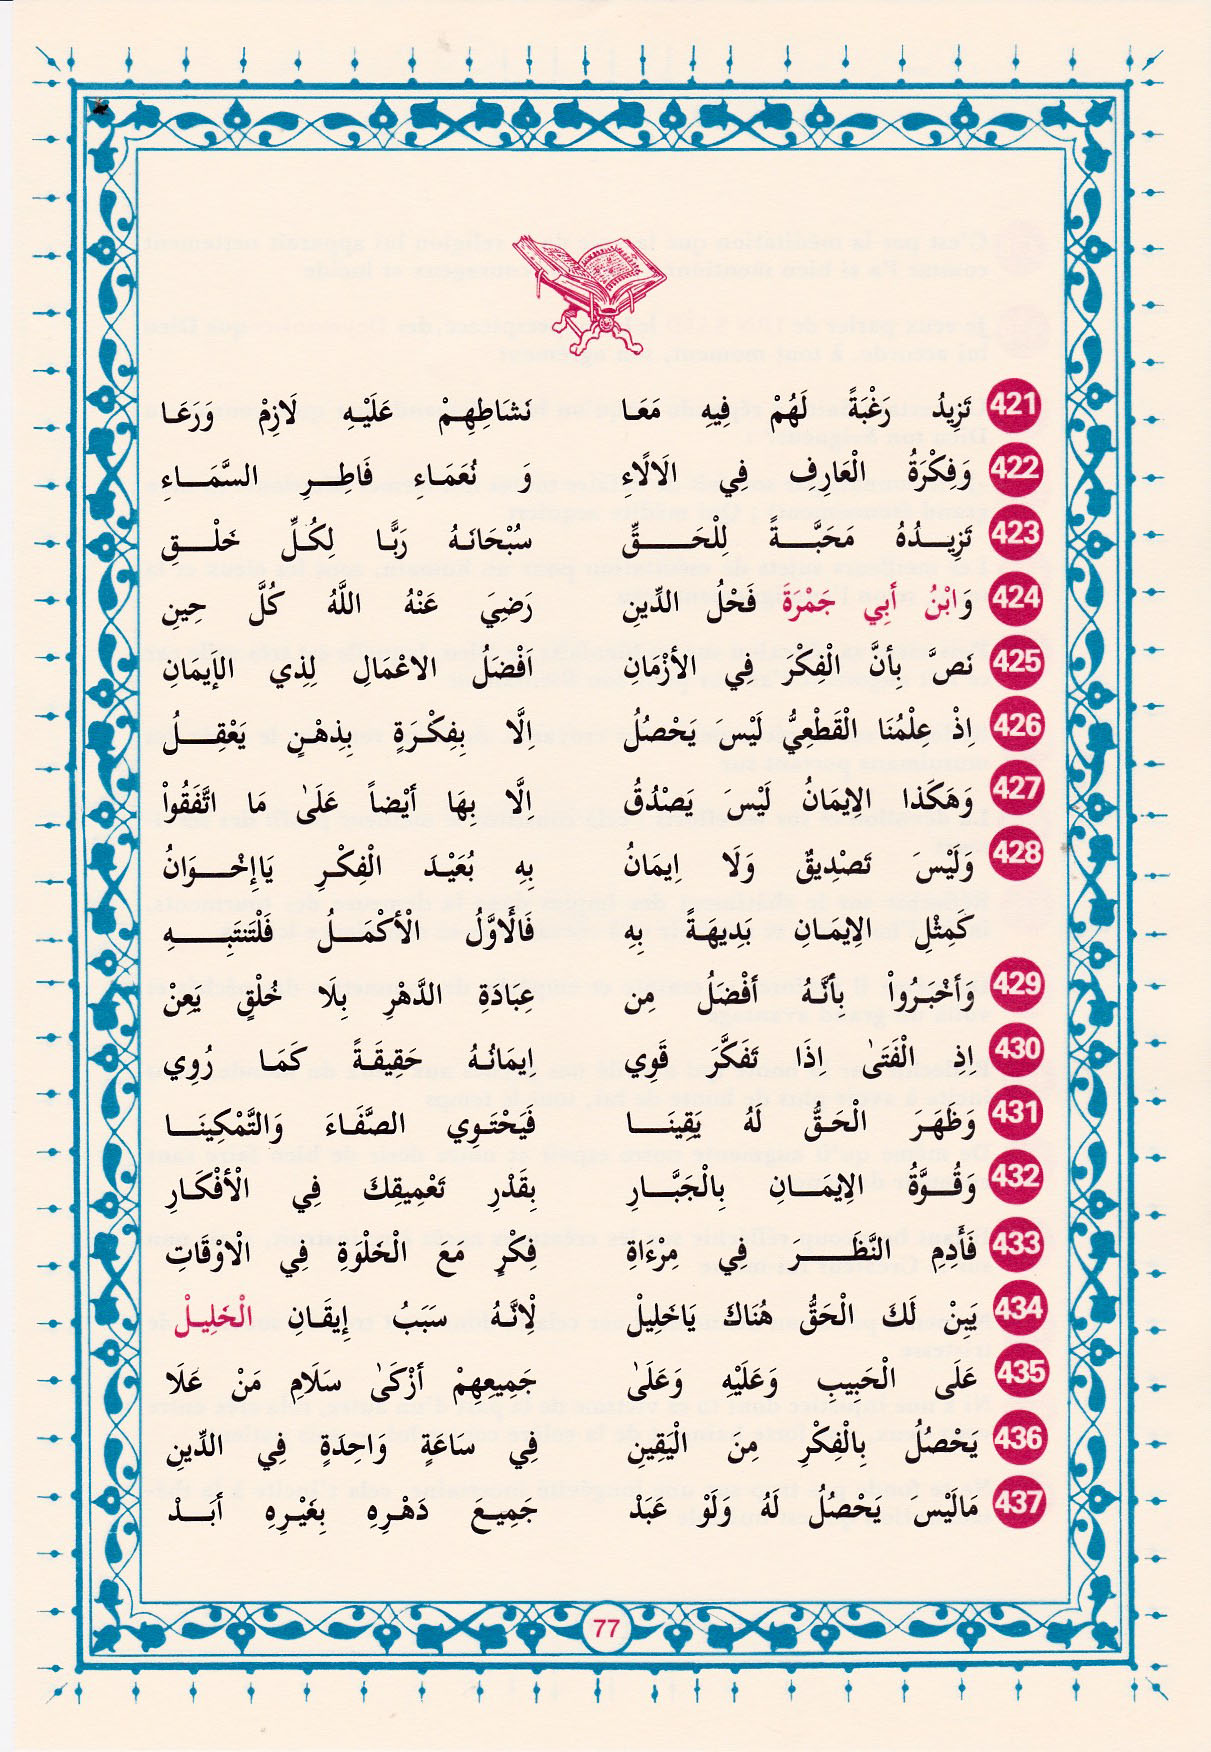 421 تَزِيدُ رَغْبَةً لَهُمْ فِيهِ مَعَا نَشَاطِهِمْ عَلَيْهِ لَازِمْ وَرَعَا
422 وَفِكْرَةُ الْعَارِفِ فِي الَالَاءِ وَ نُعَمَاءِ فَاطِرِ السَّمَاءِ
423 تَزِيدُهُ مَحَبَّةً لِلْحَقِّ سُبْحَانَهُ رَبًّا لِكُلِّ خَلْقِ
424 وَابْنُ أَبِي جَمْرَةَ فَحْلُ الدِّينِ رَضِيَ عَنْهُ اللَّهُ كُلَّ حِينِ
425 نَصَّ بِأَنَّ الْفِكْرَ فِي الأَزْمَانِ اَفْضَلُ الاعْمَالِ لِذِي الإَيمَانِ
426 اِذْ عِلْمُنَا الْقَطْعِيُّ لَيْسَ يَحْصُلُ اِلَّا بِفِكْرَةٍ بِذِهْنٍ يَعْقِلُ
427 وَهَكَذا الِايمَانُ لَيْسَ يَصْدُقُ اِلَّا بِهَا أَيْضاً عَلَىٰ مَا اتَّفَقُواْ
428 وَلَيْسَ تَصْدِيقٌ وَلَا اِيمَانُ بِهِ بُعَيْدَ الْفِكْرِ يَاإِخْوَانُ
كَمِثْلِ الِايمَانِ بَدِيهَةً بِهِ فَالَاوَّلُ الْأَكْمَلُ فَلْتَنتَبِهِ
429 وَأَخْبَرُواْ بِأَنَّهُ أَفْضَلُ مِن عِبَادَةِ الدَّهْرِ بِلَا خُلْقٍ يَعِنْ
430 اِذِ الْفَتَىٰ اِذَا تَفَكَّرَ قَوِي اِيمَانُهُ حَقِيقَةً كَمَا رُوِي
431 وَظَهَرَ الْحَقُّ لَهُ يَقِينَا فَيَحْتَوِي الصَّفَاءَ وَالتَّمْكِينَا
432 وَقُوَّةُ الِايمَانِ بِالْجَبَّارِ بِقَدْرِ تَعْمِيقِكَ فِي الْأَفْكَارِ
433 فَأَدِمِ النَّظَرَ فِي مِرْءَاةِ فِكْرٍ مَعَ الْخَلْوَةِ فِي الْاوْقَاتِ
434 يَبِنْ لَكَ الْحَقُّ هُنَاكَ يَاخَلِيلْ لِانَّهُ سَبَبُ إِيقَانِ الْخَلِيلْ
435 عَلَى الْحَبِيبِ وَعَلَيْهِ وَعَلَىٰ جَمِيعِهِمْ أَزْكَىٰ سَلَامِ مَنْ عَلَا
436 يَحْصُلُ بِالْفِكْرِ مِنَ الْيَقِينِ فِي سَاعَةٍ وَاحِدَةٍ فِي الدِّينِ
437 مَالَيْسَ يَحْصُلُ لَهُ وَلَوْ عَبَدْ جَمِيعَ دَهْرِهِ بِغَيْرِهِ أَبَدْ
77